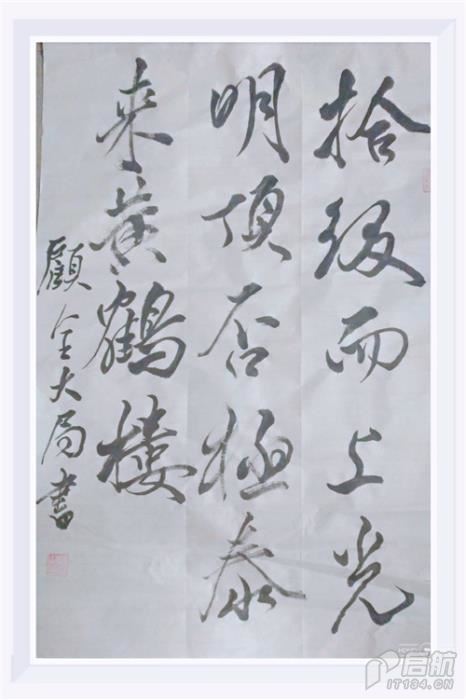 拾级而上光
明顶否极泰
来黄鹤楼
顾全大局书
启航
IT184.CN